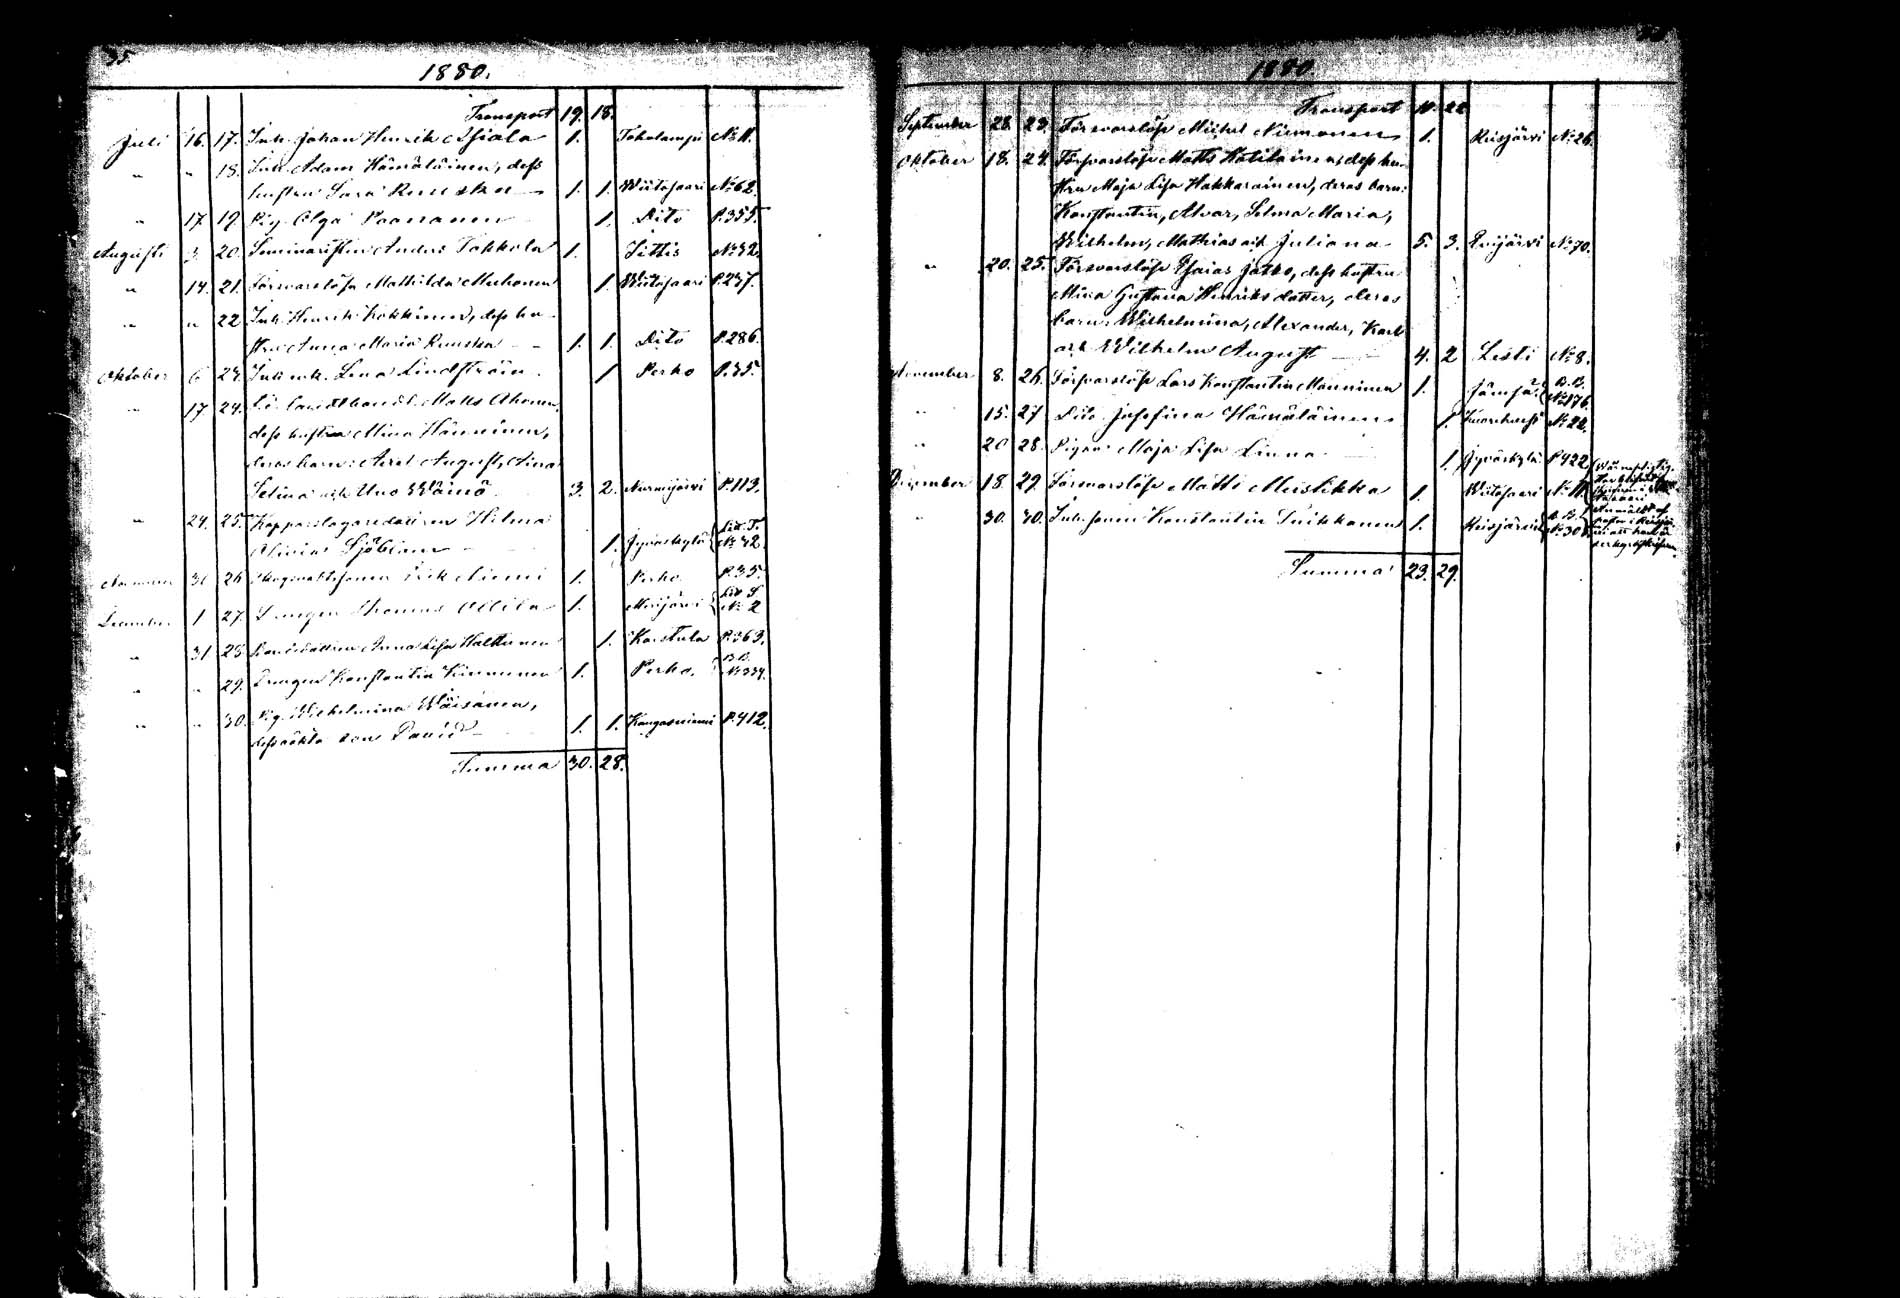 35.
1880.
Transport 19. 18.
Juli 16. 17. Inh. Johan Henrik 1. Toholampi No 11.
" " 18. Inh. Adam Hämäläinen, dess
hustru Sara Ruuska 1. 1. Wiitasaari No 62.
" 17. 19. Pig. Olga Paananen 1. Dito P.355.
Augusti 3. 20. Seminaristen Anders Tokkola 1. Sittis No 32.
" 14. 21. Försvarslösa Mathilda Muhonen 1. Wiitasaari P.237.
" " 22. Inh. Henrik Kokkinen, dess hu-
stru Anna Maria Ruuska 1. 1. Dito P.286.
Oktober 6. 23. Inh. enk. Lena Lindström 1. Perho P.35.
" 17. 24. Matts Ahonen,
dess hustru Mina Hänninen,
deras barn: Axel August, Aina
Selina och Uno Wäinö 3. 2. Nurmijärvi P.113.
" 24. 25. Kopparslagaredottren Hilma
Olivia Sjöblom 1. Jyväskylä Litt. T. No 32.
November 30. 26. Erik Niemi 1. Perho P.35.
December 1. 27. Drengen Thomas Ollila 1. Litt. S No 2
" 31. 28. Anna Lisa Halttunen 1. Karstula P.363.
" " 29. Drengen Konstantin Kinnunen 1. Perho. B.B. No 334.
" " 30. Pig. Wilhelmina Wäisänen,
dess oäkta son David 1. 1. Kangasniemi P.412.
Summa 30. 28.
1880.
Transport 11. 22
September 28. 23. Försvarslöse Michel Niemonen 1. Reisjärvi No 26.
Oktober 18. 24. Försvarslöse Matts Kotilainen, dess hu-
stru Maja Lisa Hakkarainen, deras barn:
Konstantin, Alvar, Selma Maria,
Wilhelm, Mathias och Juliana 5. 3. Evijärvi No 70.
" 20. 25. Försvarslöse Esaias Jatko, dess hustru
Mina Gustava Henriksdotter, deras
barn: Wilhelmina, Alexander, Karl
och Wilhelm August 4. 2 Lesti No 8.
November 8. 26. Försvarslöse Lars Konstantin Manninen 1. Jämsä B.B. No 176.
" 15. 27 Dito Josefina Hämäläinen 1. No 22.
" 20 28. Pigan Maja Lisa Linna 1. Jyväskylä P.422
December 18. 29. Försvarslöse Matti Mustikka 1. Wiitasaari No 11.
" 30. 30. Inh. sonen Konstantin Piikkanen 1. Reisjärvi B.B. No 308.
Summa 23. 29.